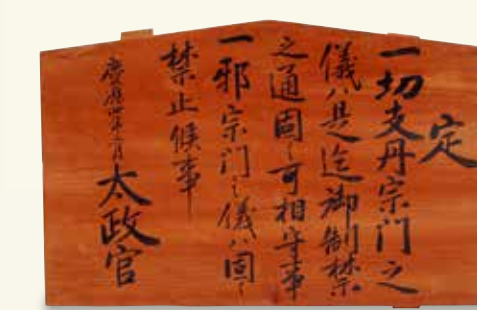 定
一切支丹宗門之
儀ハ是迄御制禁
之通固く可相守事
一邪宗門之儀ハ固く
禁止候事
慶應四年三月
太政官